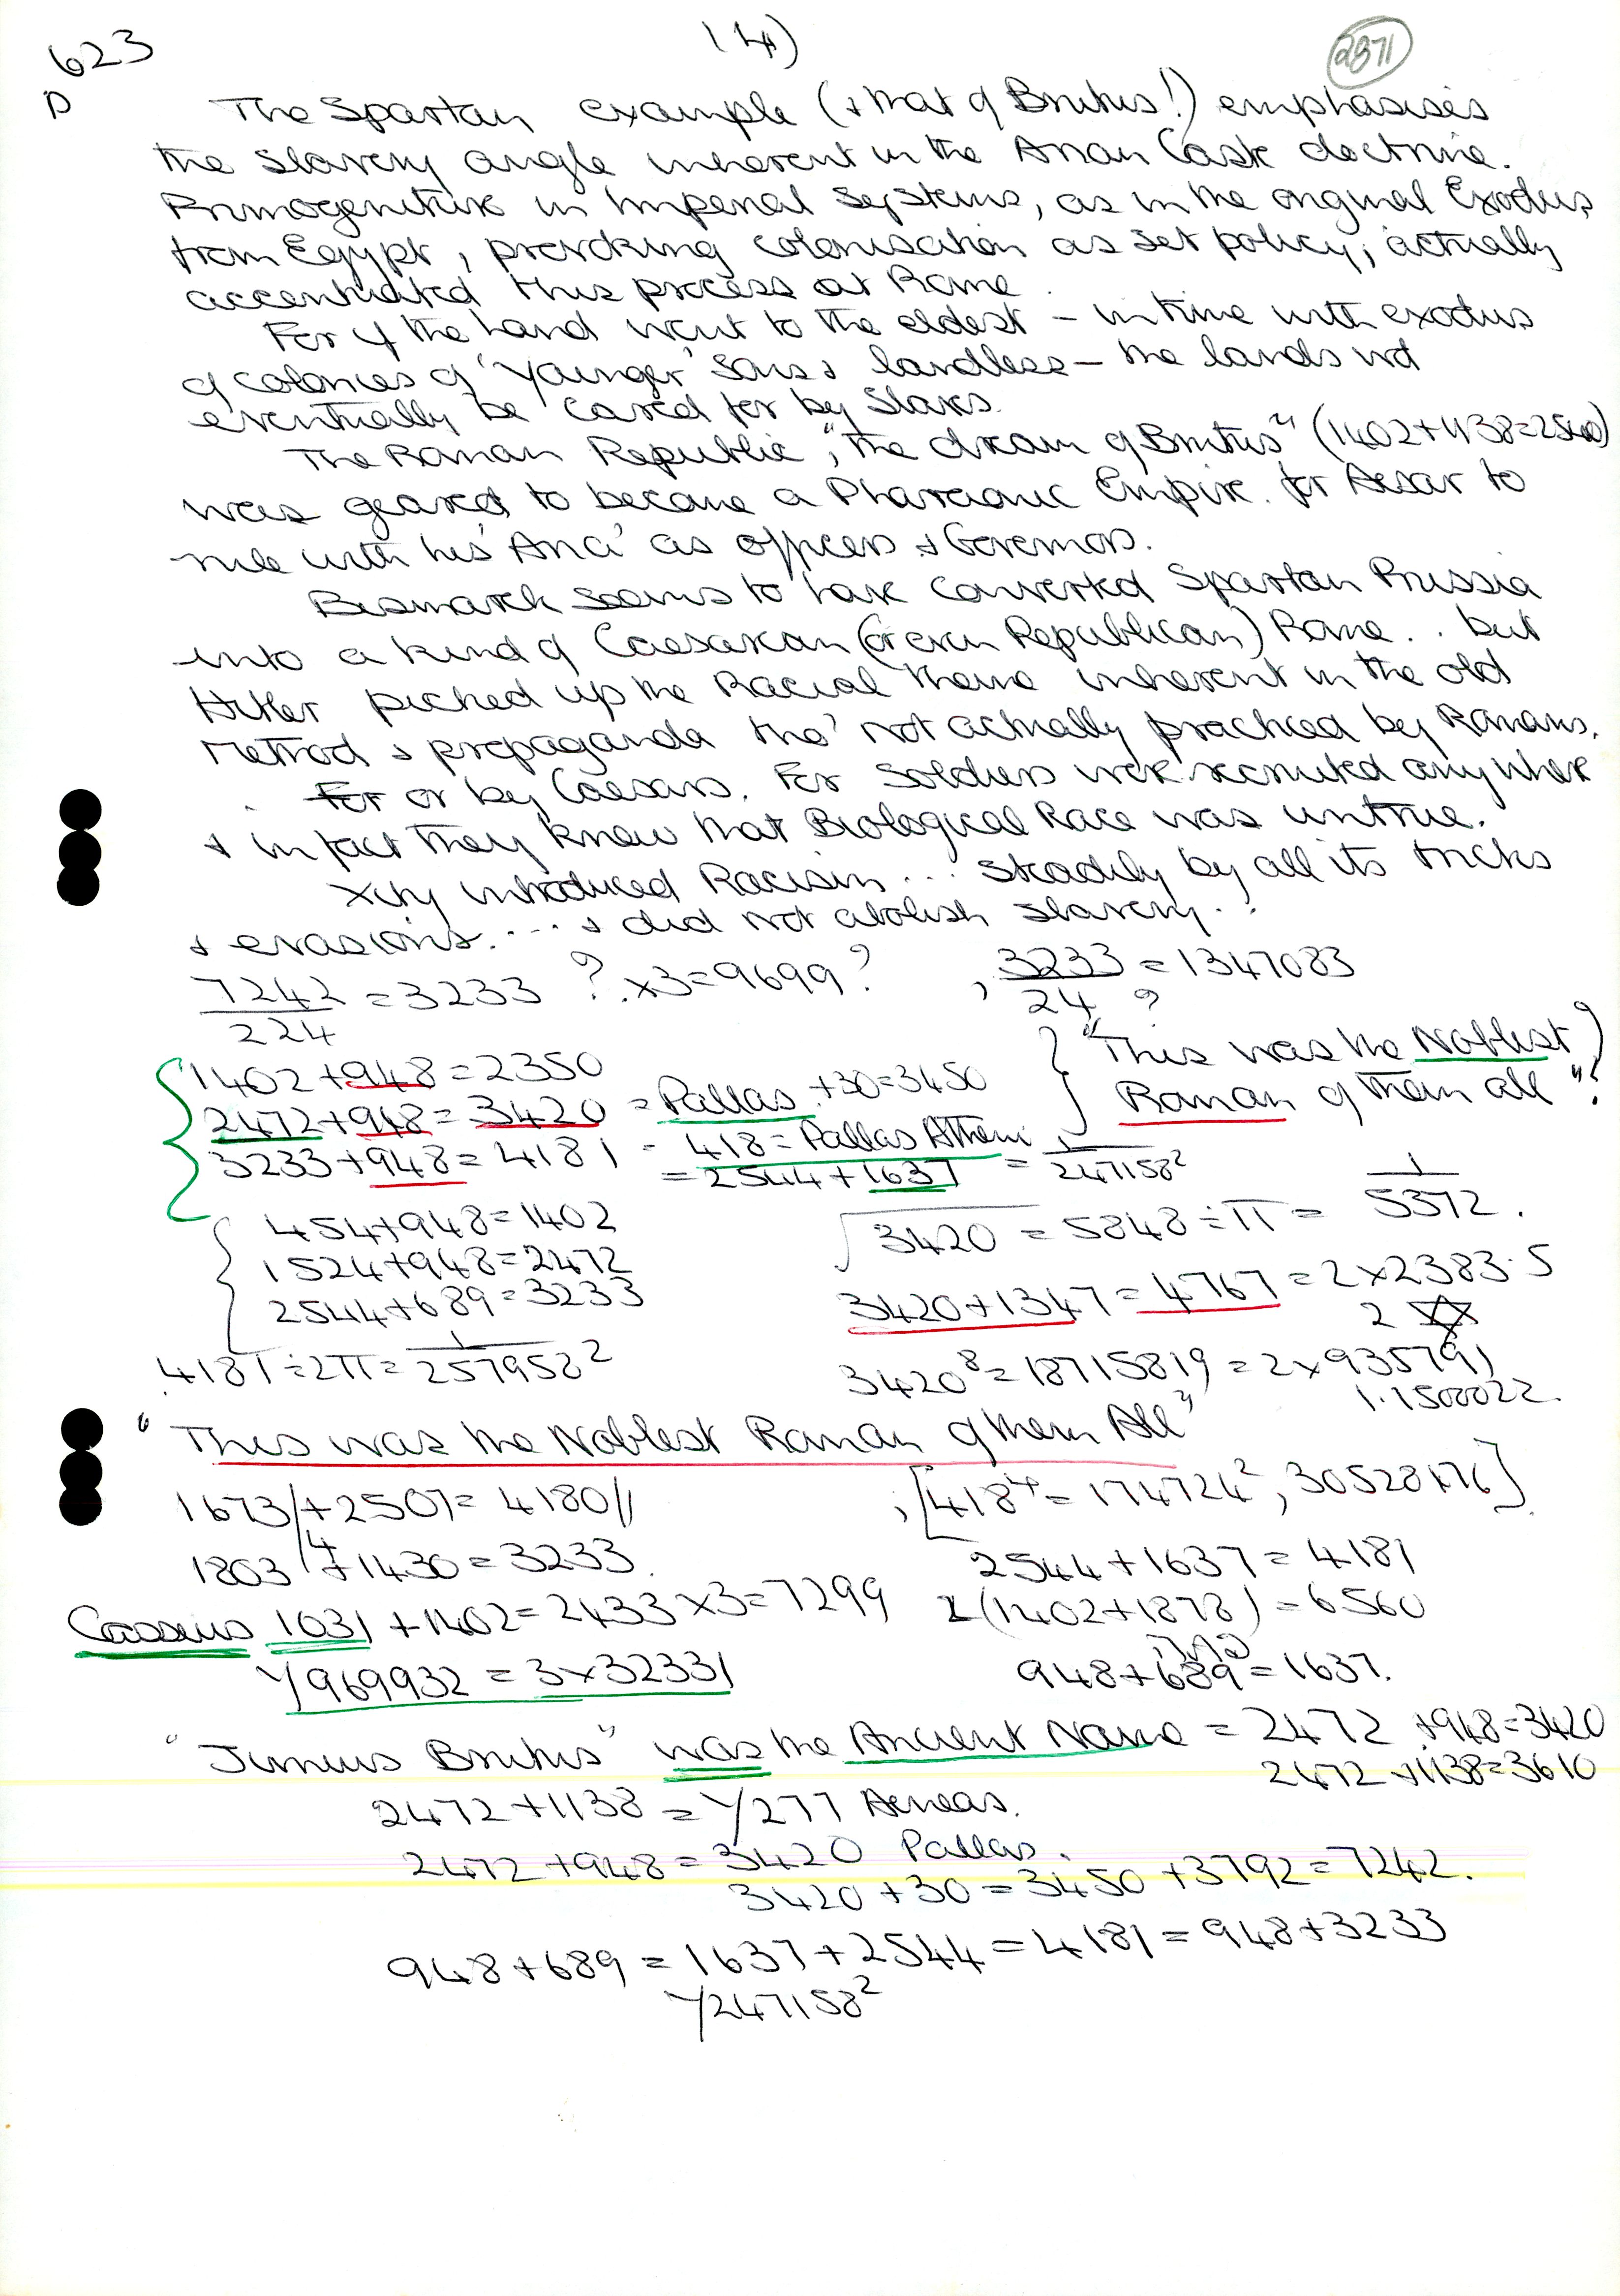 623
(4)
2871
D
The Spartan example (+ that of Brutus!) emphasises
the slavery angle inherent in the Arian Caste doctrine.
Primogeniture in Imperial Systems, as in the original Exodus
from Egypt, provoking colonisation as set policy, actually
accentuated this process at Rome.
For if the land went to the eldest – in time with exodus
of colonies of 'younger' sons & landless – the lands wd
eventually be cared for by Slaves.
The Roman Republic, "the dream of Brutus" (1402+1138=2540)
was geared to become a Pharaonic Empire. for Aesar to
rule with his 'Arici' as officers & Governors.
Bismarck seems to have converted Spartan Prussia
into a kind of Caesarean (or even Republican) Rome.. but
Hitler picked up the Racial theme inherent in the old
Method & propaganda tho' not actually practiced by Romans.
For or by Caesars. For soldiers were recruited anywhere
+ in fact they knew that Biological Race was untrue.
Xity introduced Racism... steadily by all its tricks
+ evasions.... + did not abolish slavery..
7242/224 = 3233 ? x3=9699? , 3233/24 = 1347083 ?
1402+948=2350 } "This was the Noblest
2472+948=3420 = Pallas +30=3450 Roman of them all"?
3233+948=4181 - 418=Pallas Athene
= 2544+1637 = 1/247158²
454+948=1402 √3420 = 5848÷π = 1/5372.
1524+948=2472
2544+689=3233 3420+1347=4767=2x2383.5
2
4181÷2π=1/257952² 3420⁸=18715819=2x9357791
1.1500022.
"This was the Noblest Roman of them All"
1673/+2507=4180// , [418⁴=174724², 30528476]
1803/4+1430=3233. 2544+1637=4181
Cassius 1031+1402=2433x3=7299 2(1402+1878)=6560
1/969932=3x32331 948+689=1637.
"Junius Brutus" was the Ancient Name = 2472 +948=3420
2472+1138=3610
2472+1138=1/277 Aeneas.
2472+948=3420 Pallas.
3420+30=3450+3792=7242.
948+689=1637+2544=4181=948+3233
1/247158²